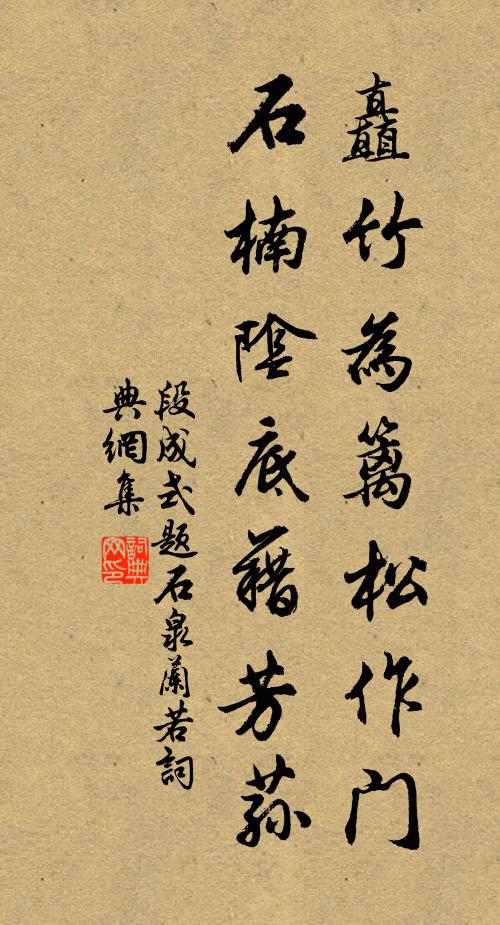 矗竹為篱松作門
石楠陰底藉芳蓀
段成式題石泉蘭若詞
典網集
詞典網印